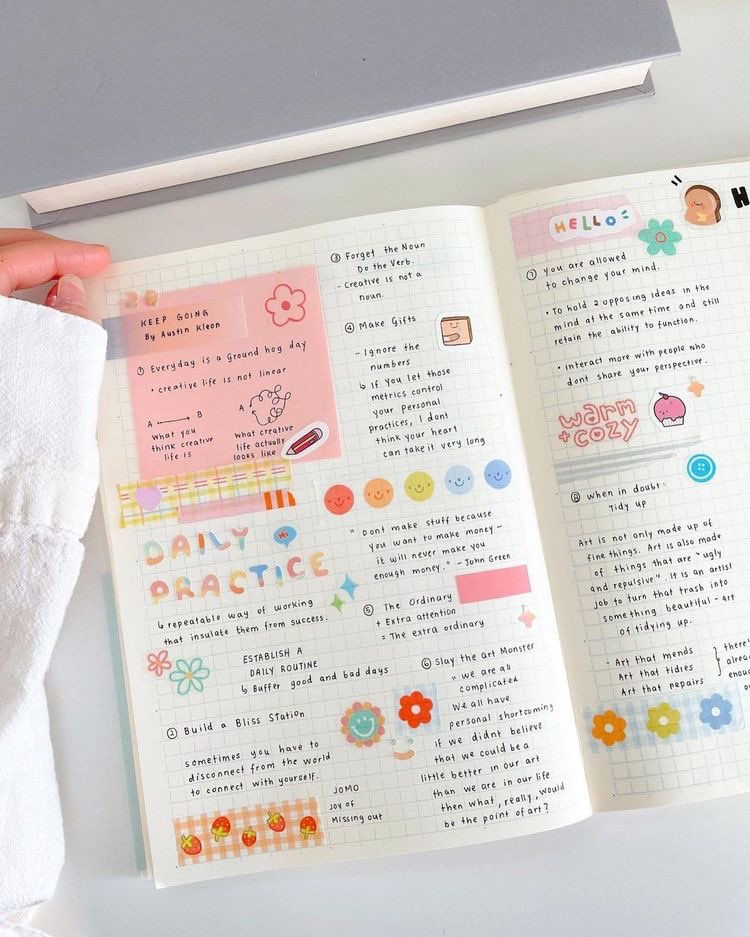 20
KEEP GOING
By Austin Kleon
① Everyday is a Ground hog day
• creative life is not linear
A → B
A
What you
think creative
life is
What creative
life actually
looks like
DAILY
Hi
PRACTICE
↳ repeatable way of working
that insulate them from success.
ESTABLISH A
DAILY ROUTINE
↳ Buffer good and bad days
② Build a Bliss Station
sometimes you have to
disconnect from the world
to connect with yourself.
JOMO
Joy of
Missing out
③ Forget the Noun
Do the Verb.
- Creative is not a
noun.
④ Make Gifts
- Ignore the
numbers
↳ If you let those
metrics control
your personal
practices, I dont
think your heart
can take it very long
" Dont make stuff because
you want to make money –
it will never make you
enough money." – John Green
⑤ The Ordinary
+ Extra attention
= The extra ordinary
⑥ Slay the art Monster
" we are all
complicated
We all have
personal shortcoming
If we didnt believe
that we could be a
little better in our art
than we are in our life
then what, really, would
be the point of art?
HELLO
H
⑦ you are allowed
to change your mind.
• To hold 2 opposing ideas in the
mind at the same time and still
retain the ability to function.
• Interact more with people who
dont share your perspective.
warm
+ cozy
⑧ When in doubt:
Tidy up
Art is not only made up of
fine things. Art is also made
of things that are "ugly
and repulsive". It is an artist
job to turn that trash into
something beautiful – art
of tidying up.
- Art that mends
Art that tidies
Art that repairs